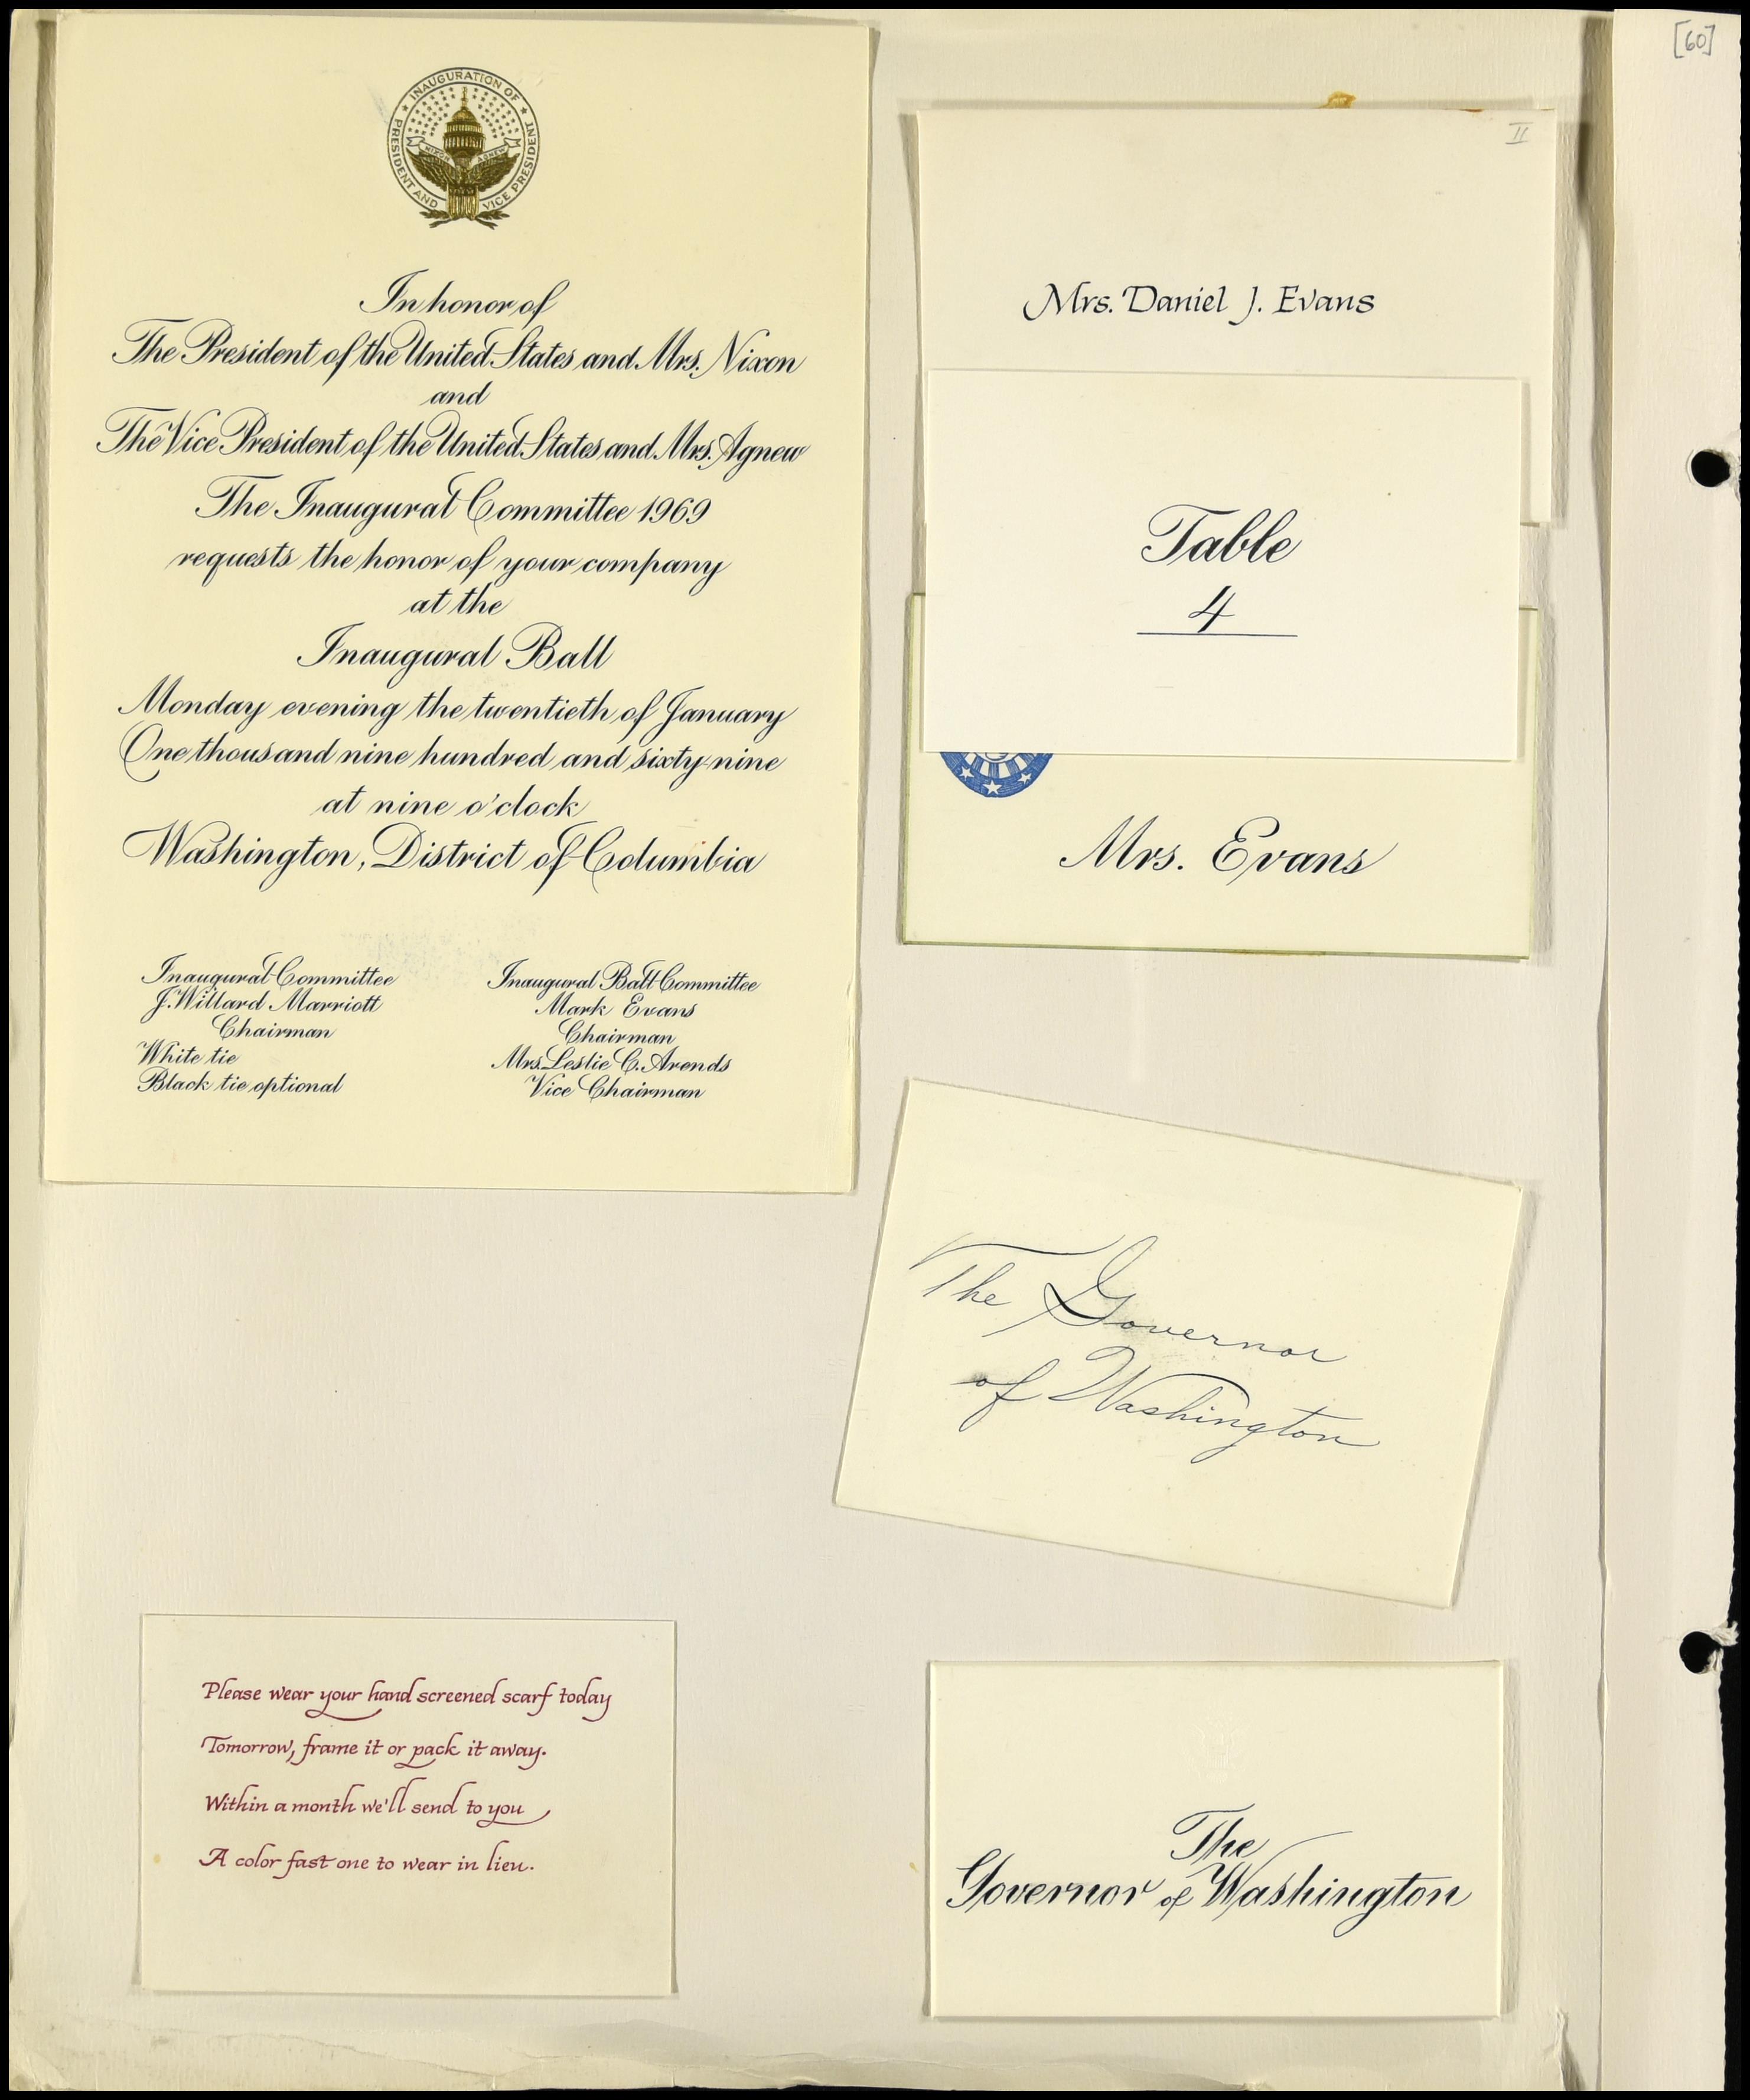 [60]
INAUGURATION OF
PRESIDENT AND VICE PRESIDENT
NIXON AGNEW
In honor of
The President of the United States and Mrs. Nixon
and
The Vice President of the United States and Mrs. Agnew
The Inaugural Committee 1969
requests the honor of your company
at the
Inaugural Ball
Monday evening the twentieth of January
One thousand nine hundred and sixty-nine
at nine o'clock
Washington, District of Columbia
Inaugural Committee
J. Willard Marriott
Chairman
White tie
Black tie optional
Inaugural Ball Committee
Mark Evans
Chairman
Mrs. Leslie C. Arends
Vice Chairman
II
Mrs. Daniel J. Evans
Table
4
Mrs. Evans
The Governor
of Washington
Please wear your hand screened scarf today
Tomorrow, frame it or pack it away.
Within a month we'll send to you
A color fast one to wear in lieu.
The
Governor of Washington